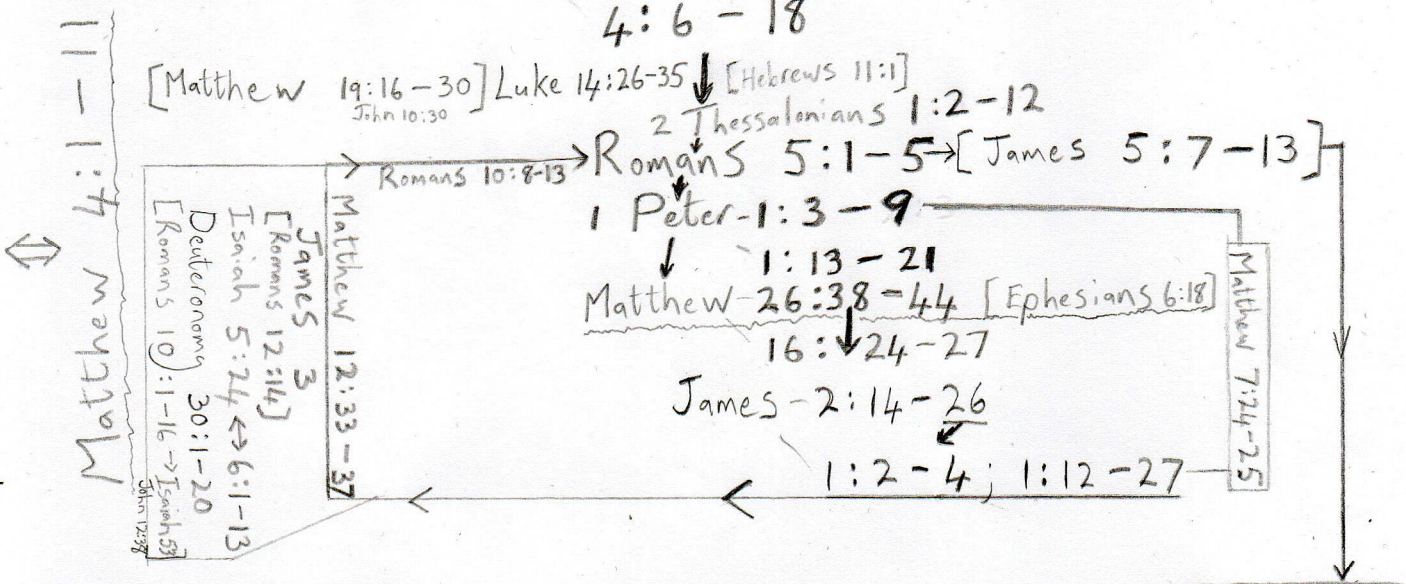 4:6-18
[Matthew 19:16-30] Luke 14:26-35 [Hebrews 11:1]
John 10:30
2 Thessalonians 1:2-12
Romans 10:8-13 → Romans 5:1-5→[James 5:7-13]
1 Peter-1:3-9
1:13-21
Matthew-26:38-44 [Ephesians 6:18]
16:24-27
James-2:14-26
1:2-4; 1:12-27
Matthew 7:24-25
Matthew 12:33-37
James 3
[Romans 12:14]
Isaiah 5:24 ↔ 6:1-13
Deuteronomy 30:1-20
[Romans 10):1-16→Isaiah 53]
John 12:38
Matthew 4:1-11